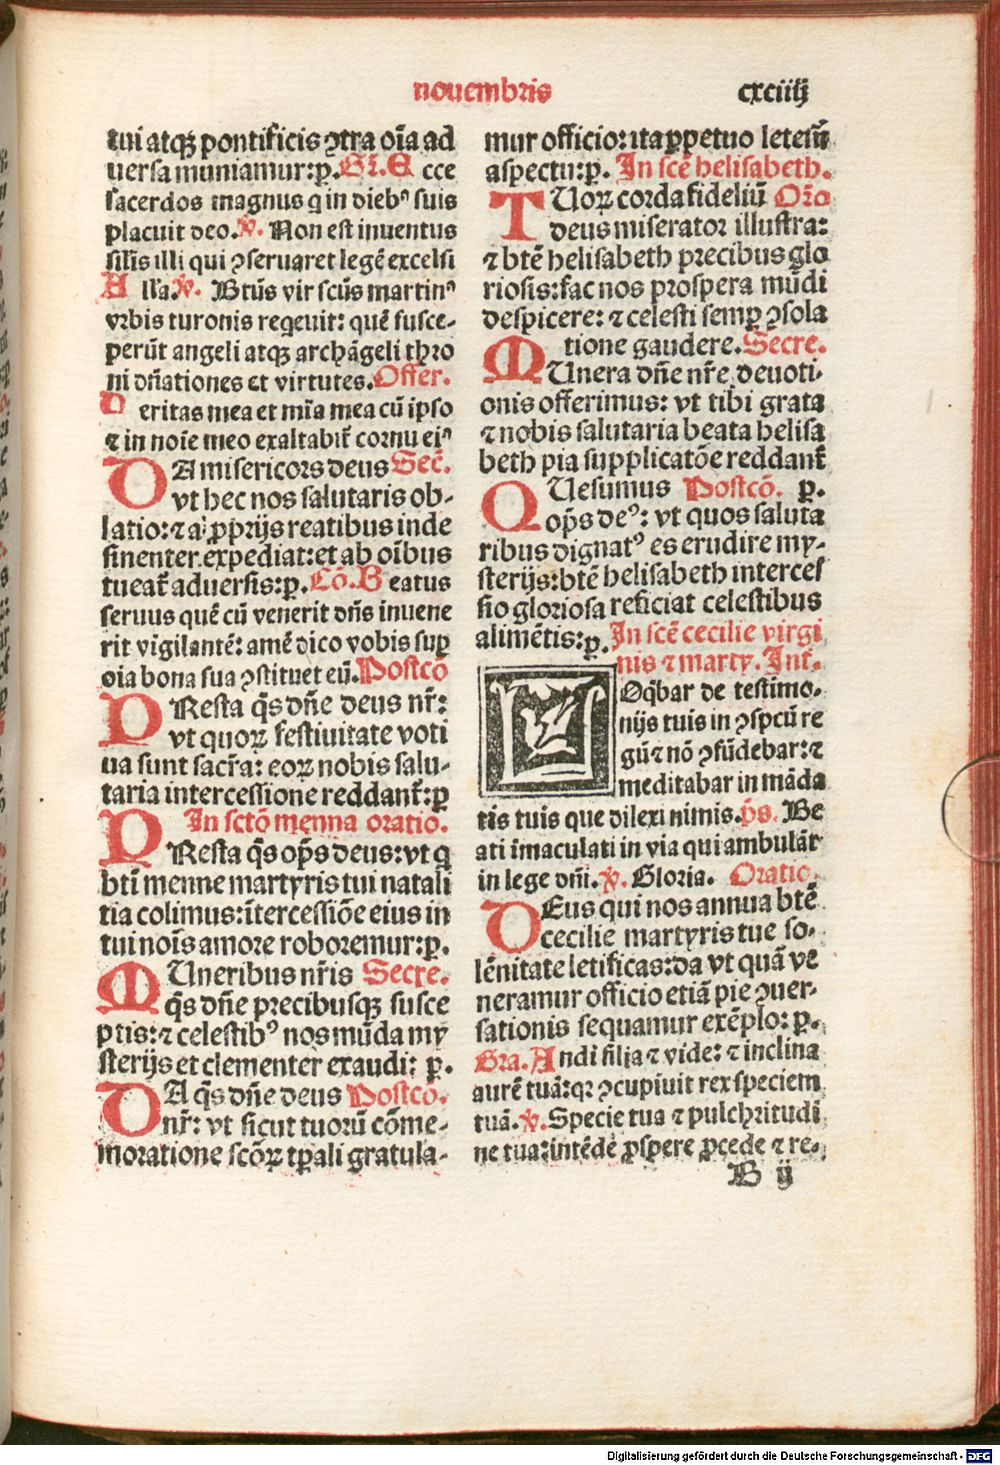 nouembris
cxciiij
tui atqꝫ pontificis ꝯtra oīa ad
uersa muniamur: ꝑ. Gr̄. E cce
sacerdos magnus q in dieb⁹ suis
placuit deo. ℣. Non est inuentus
silīs illi qui ꝯseruaret legē excelsi
A ll'a. ℣. Btūs vir scūs martin⁹
vrbis turonis reqeuit: quē susce-
perūt angeli atqꝫ archāgeli thro
ni dn̄ationes et virtutes. Offer.
V eritas mea et mīa mea cū ipso
⁊ in noīe meo exaltabit̄ cornu ei⁹
DA misericors deus Sec̄.
vt hec nos salutaris ob-
latio: ⁊ a ꝓprijs reatibus inde
sinenter expediat: et ab oībus
tueat̄ aduersis: ꝑ. Cō. B eatus
seruus quē cū venerit dn̄s inuene
rit vigilantē: amē dico vobis suꝑ
oīa bona sua ꝯstituet eū. Postcō
PResta q̄s dn̄e deus nr̄:
vt quoꝝ festiuitate voti
ua sunt sacr̄a: eoꝝ nobis salu-
taria intercessione reddant̄: ꝑ
In sctō menna oratio.
PResta q̄s op̄s deus: vt q
btī menne martyris tui natali
tia colimus: ītercessiōe eius in
tui noīs amore roboremur: ꝑ.
MUneribus nr̄is Secre.
q̄s dn̄e precibusqꝫ susce
ptis: ⁊ celestib⁹ nos mūda my
sterijs et clementer exaudi: ꝑ.
DA q̄s dn̄e deus Postcō.
nr̄: vt sicut tuorū cōme-
moratione scōꝝ tꝑali gratula-
mur officio: ita ꝑpetuo letem̄
aspectu: ꝑ. In scē helisabeth.
TUoꝝ corda fideliū Orō
deus miserator illustra:
⁊ btē helisabeth precibus glo
riosis: fac nos prospera mūdi
despicere: ⁊ celesti semꝑ ꝯsola
tione gaudere. Secre.
MUnera dn̄e nr̄e deuoti-
onis offerimus: vt tibi grata
⁊ nobis salutaria beata helisa
beth pia supplicatōe reddant̄
QUesumus Postcō. ꝑ.
op̄s de⁹: vt quos saluta
ribus dignat⁹ es erudire my-
sterijs: btē helisabeth interces
sio gloriosa reficiat celestibus
alimētis: ꝑ. In scē cecilie virgi
nis ⁊ marty. Int̄.
LOq̄bar de testimo-
nijs tuis in ꝯspcū re
gū ⁊ nō ꝯfūdebar: ⁊
meditabar in māda
tis tuis que dilexi nimis. p̄s. Be
ati īmaculati in via qui ambulāt
in lege dn̄i. ℣. Gloria. Oratio.
DEus qui nos annua btē
cecilie martyris tue so-
lēnitate letificas: da vt quā ve
neramur officio etiā pie ꝯuer-
sationis sequamur exēplo: ꝑ.
Gra. A ndi filia ⁊ vide: ⁊ inclina
aurē tuā: qꝛ ꝯcupiuit rex speciem
tuā. ℣. Specie tua ⁊ pulchritudī
ne tua: intēde ꝓspere ꝓcede ⁊ re-
B ij
Digitalisierung gefördert durch die Deutsche Forschungsgemeinschaft - DFG